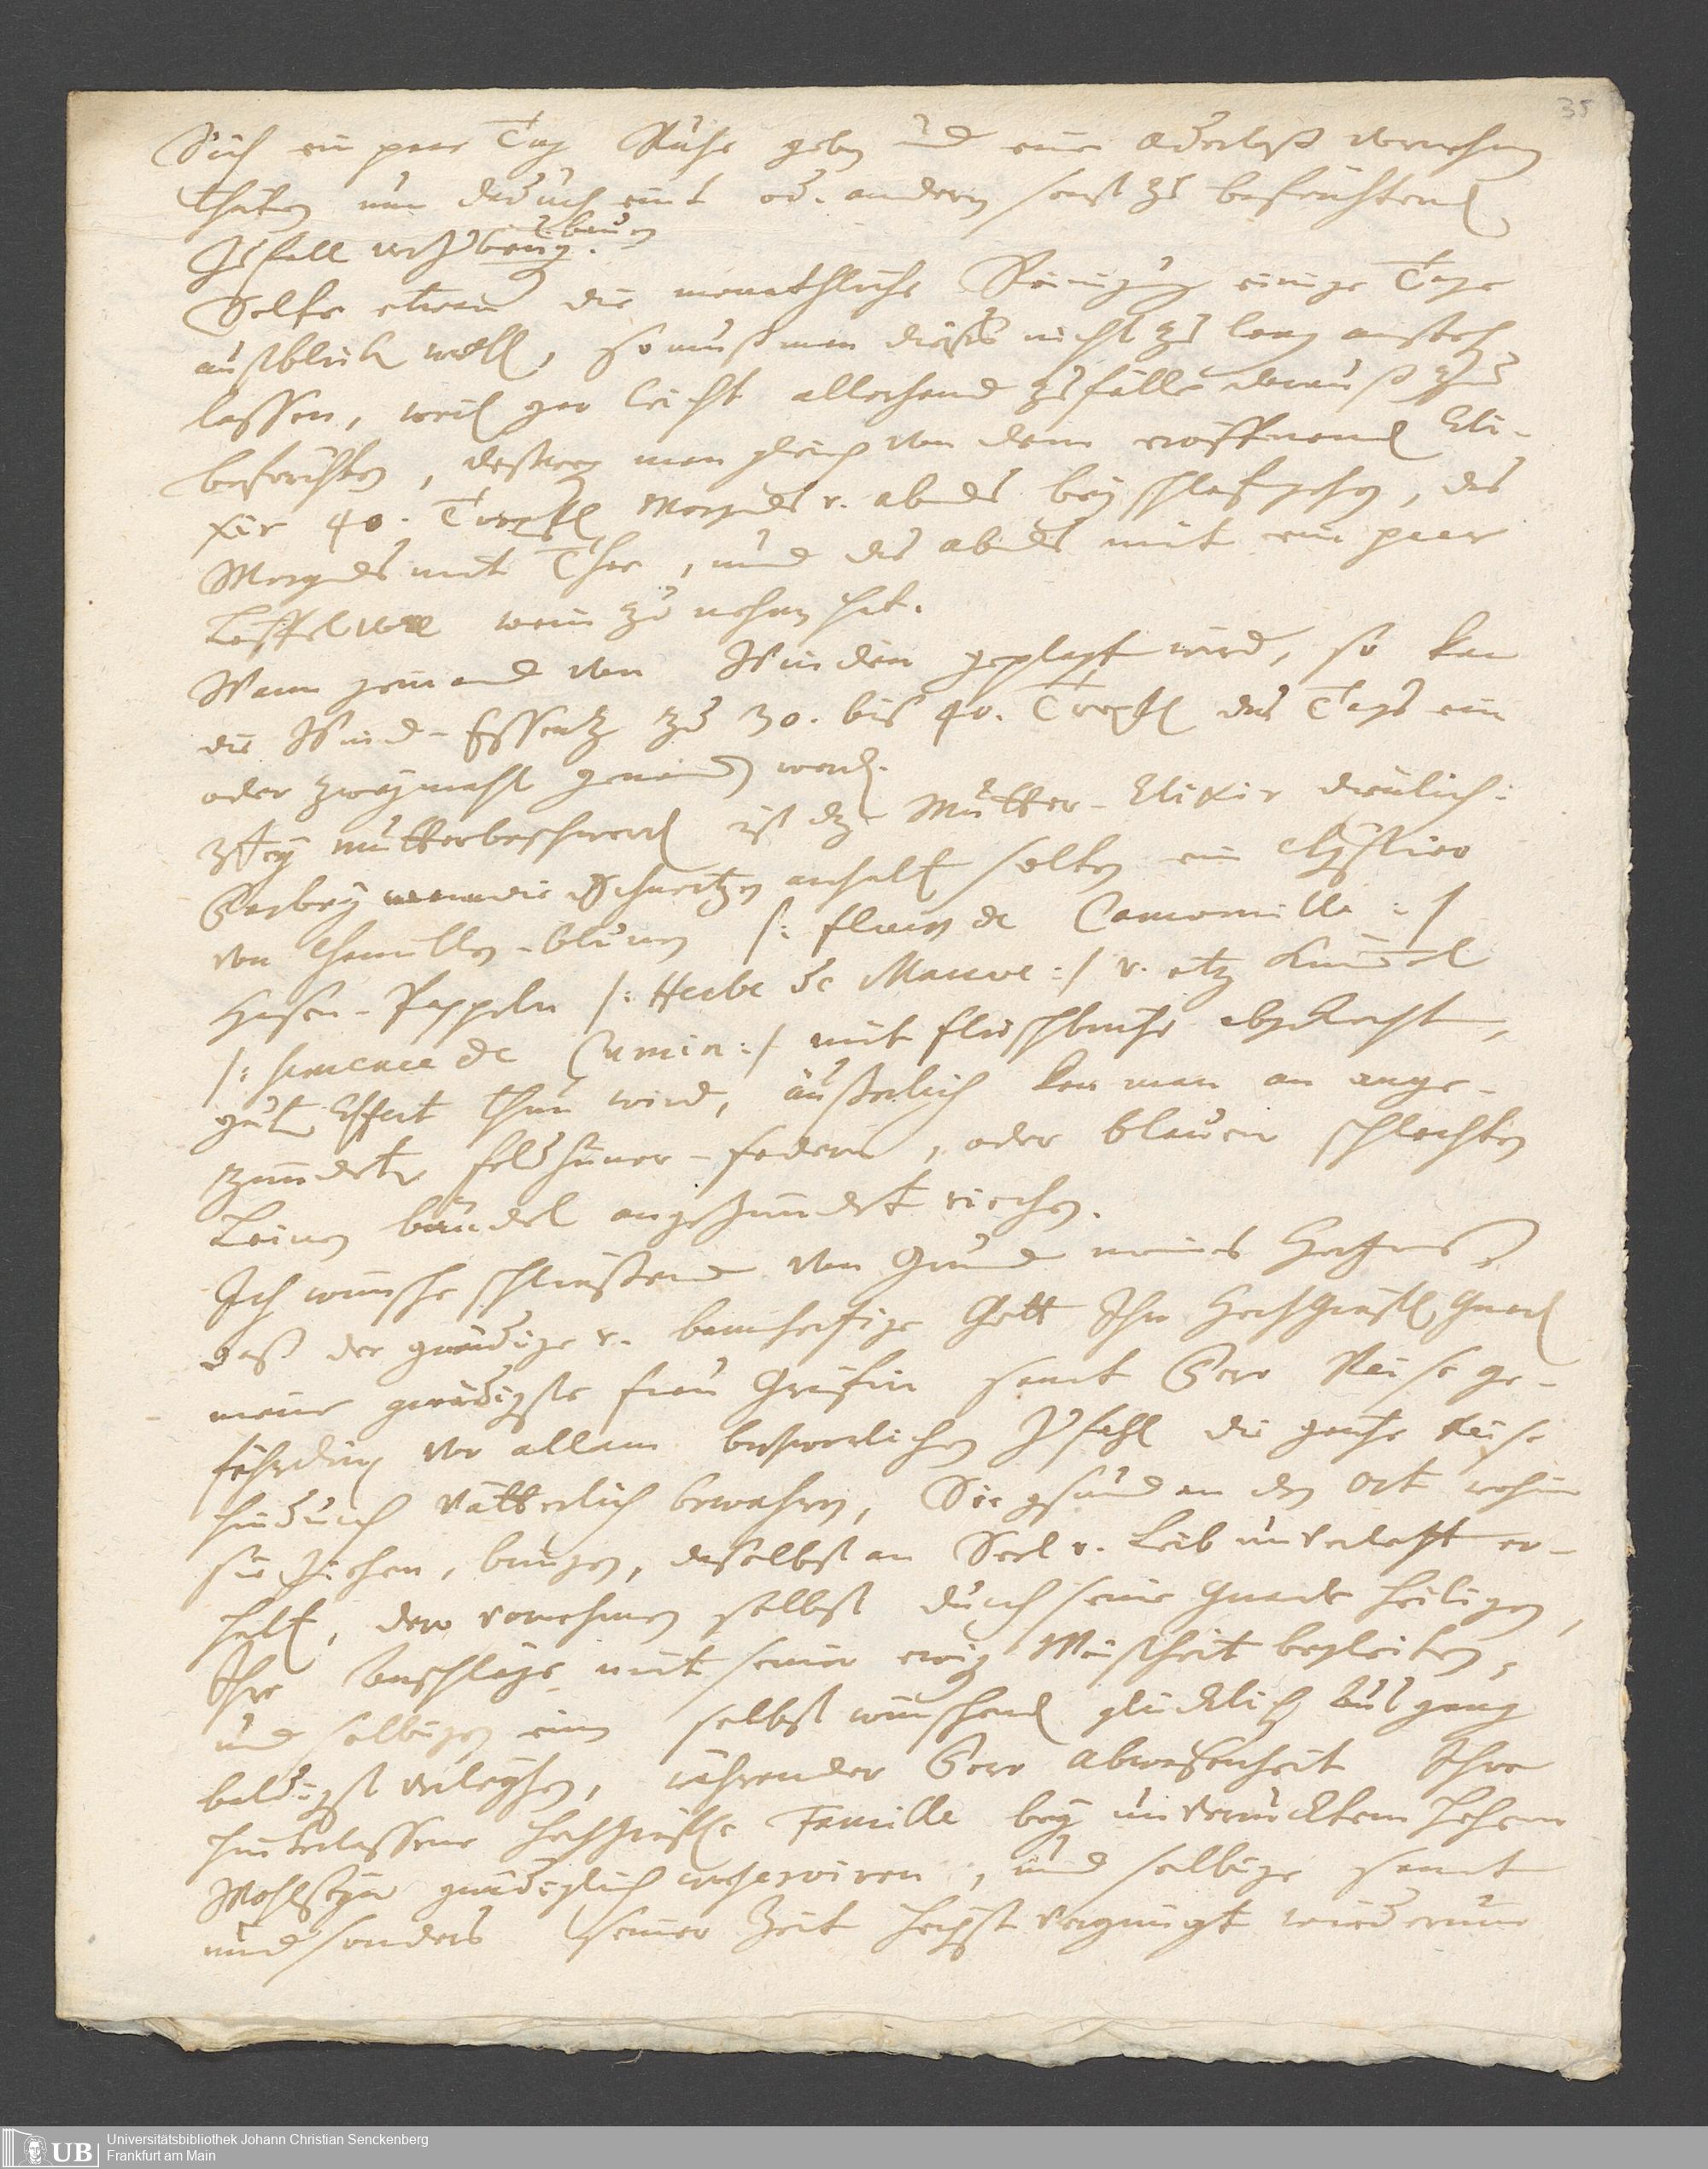 35
Sich ein paar Tag Ruhe geben und eine Aderlaß vornehmen
thäten um dadurch eint od. andern sonst zu befürchtend
Zufall vorzubeug. bauen
Solte etwan die monathliche Reinigung einige Tage
außbleiben wollen, so muß man dießes nicht zu lang anstehen
lassen, weil gar leicht allerhand Zufälle darauß zu
beförchten, deßwegen man gleich von dem eröffnenden Eli-
xir 40. Tropfen Morgends u. abends bey schlafengehen, des
Morgends mit Thee, und des abends mit ein paar
Löffel voll wein zu nehmen hat.
Wann jemand von Winden geplagt wird, so kan
die Wind-Essentz zu 30. bis 40. Tropfen des Tags ein
oder zweymahl genommen werden.
bey mutterbeschwerden ist das Mutter-Elixir dienlich:
Darbey wann die Schmertzen anhalten solten ein Clystier
von Chamillen-blumen /: fleurs de Camomille :/
Hasen-Pappeln /: Herbe de Mauve :/ u. etw Kümmel
/: semence de Cumin :/ mit fleischbrühe abgekocht,
guten Effect thun wird, äußerlich kan man an ange-
zündete feldhüner-federn, oder blauen schlechten
Leinen bändel angezündet riechen.
Ich wünsche schließend von Grund meines Hertzens
daß der gnädige u. barmhertzige Gott Ihro HochGräfl. Gnaden
meine gnädigste frau Gräfin samt Dero Reise ge-
fährden vor allem beschwerlichen Zufall die gantze Reise
hindurch Vätterlich bewahren, Sie gesund an den Ort wohin
sie ziehen, bringen, daselbst an Seel u. Leib unverletzt er-
halten, dero vornehmen selbst durch seine Gnade heiligen,
Ihre Anschläge mit seiner ewigen Weisheit begleiten,
und selbigen einen selbst wünschenden glücklichen Außgang
baldigst verleyhen, währender Dero abwesenheit Ihre
hinterlassene hochgräfliche Famille bey unverrücktem hohem
Wohlseyn gnädiglich conserviren, und selbige samt
und sonders seiner Zeit höchst vergnügt wiederum
UB Universitätsbibliothek Johann Christian Senckenberg
Frankfurt am Main